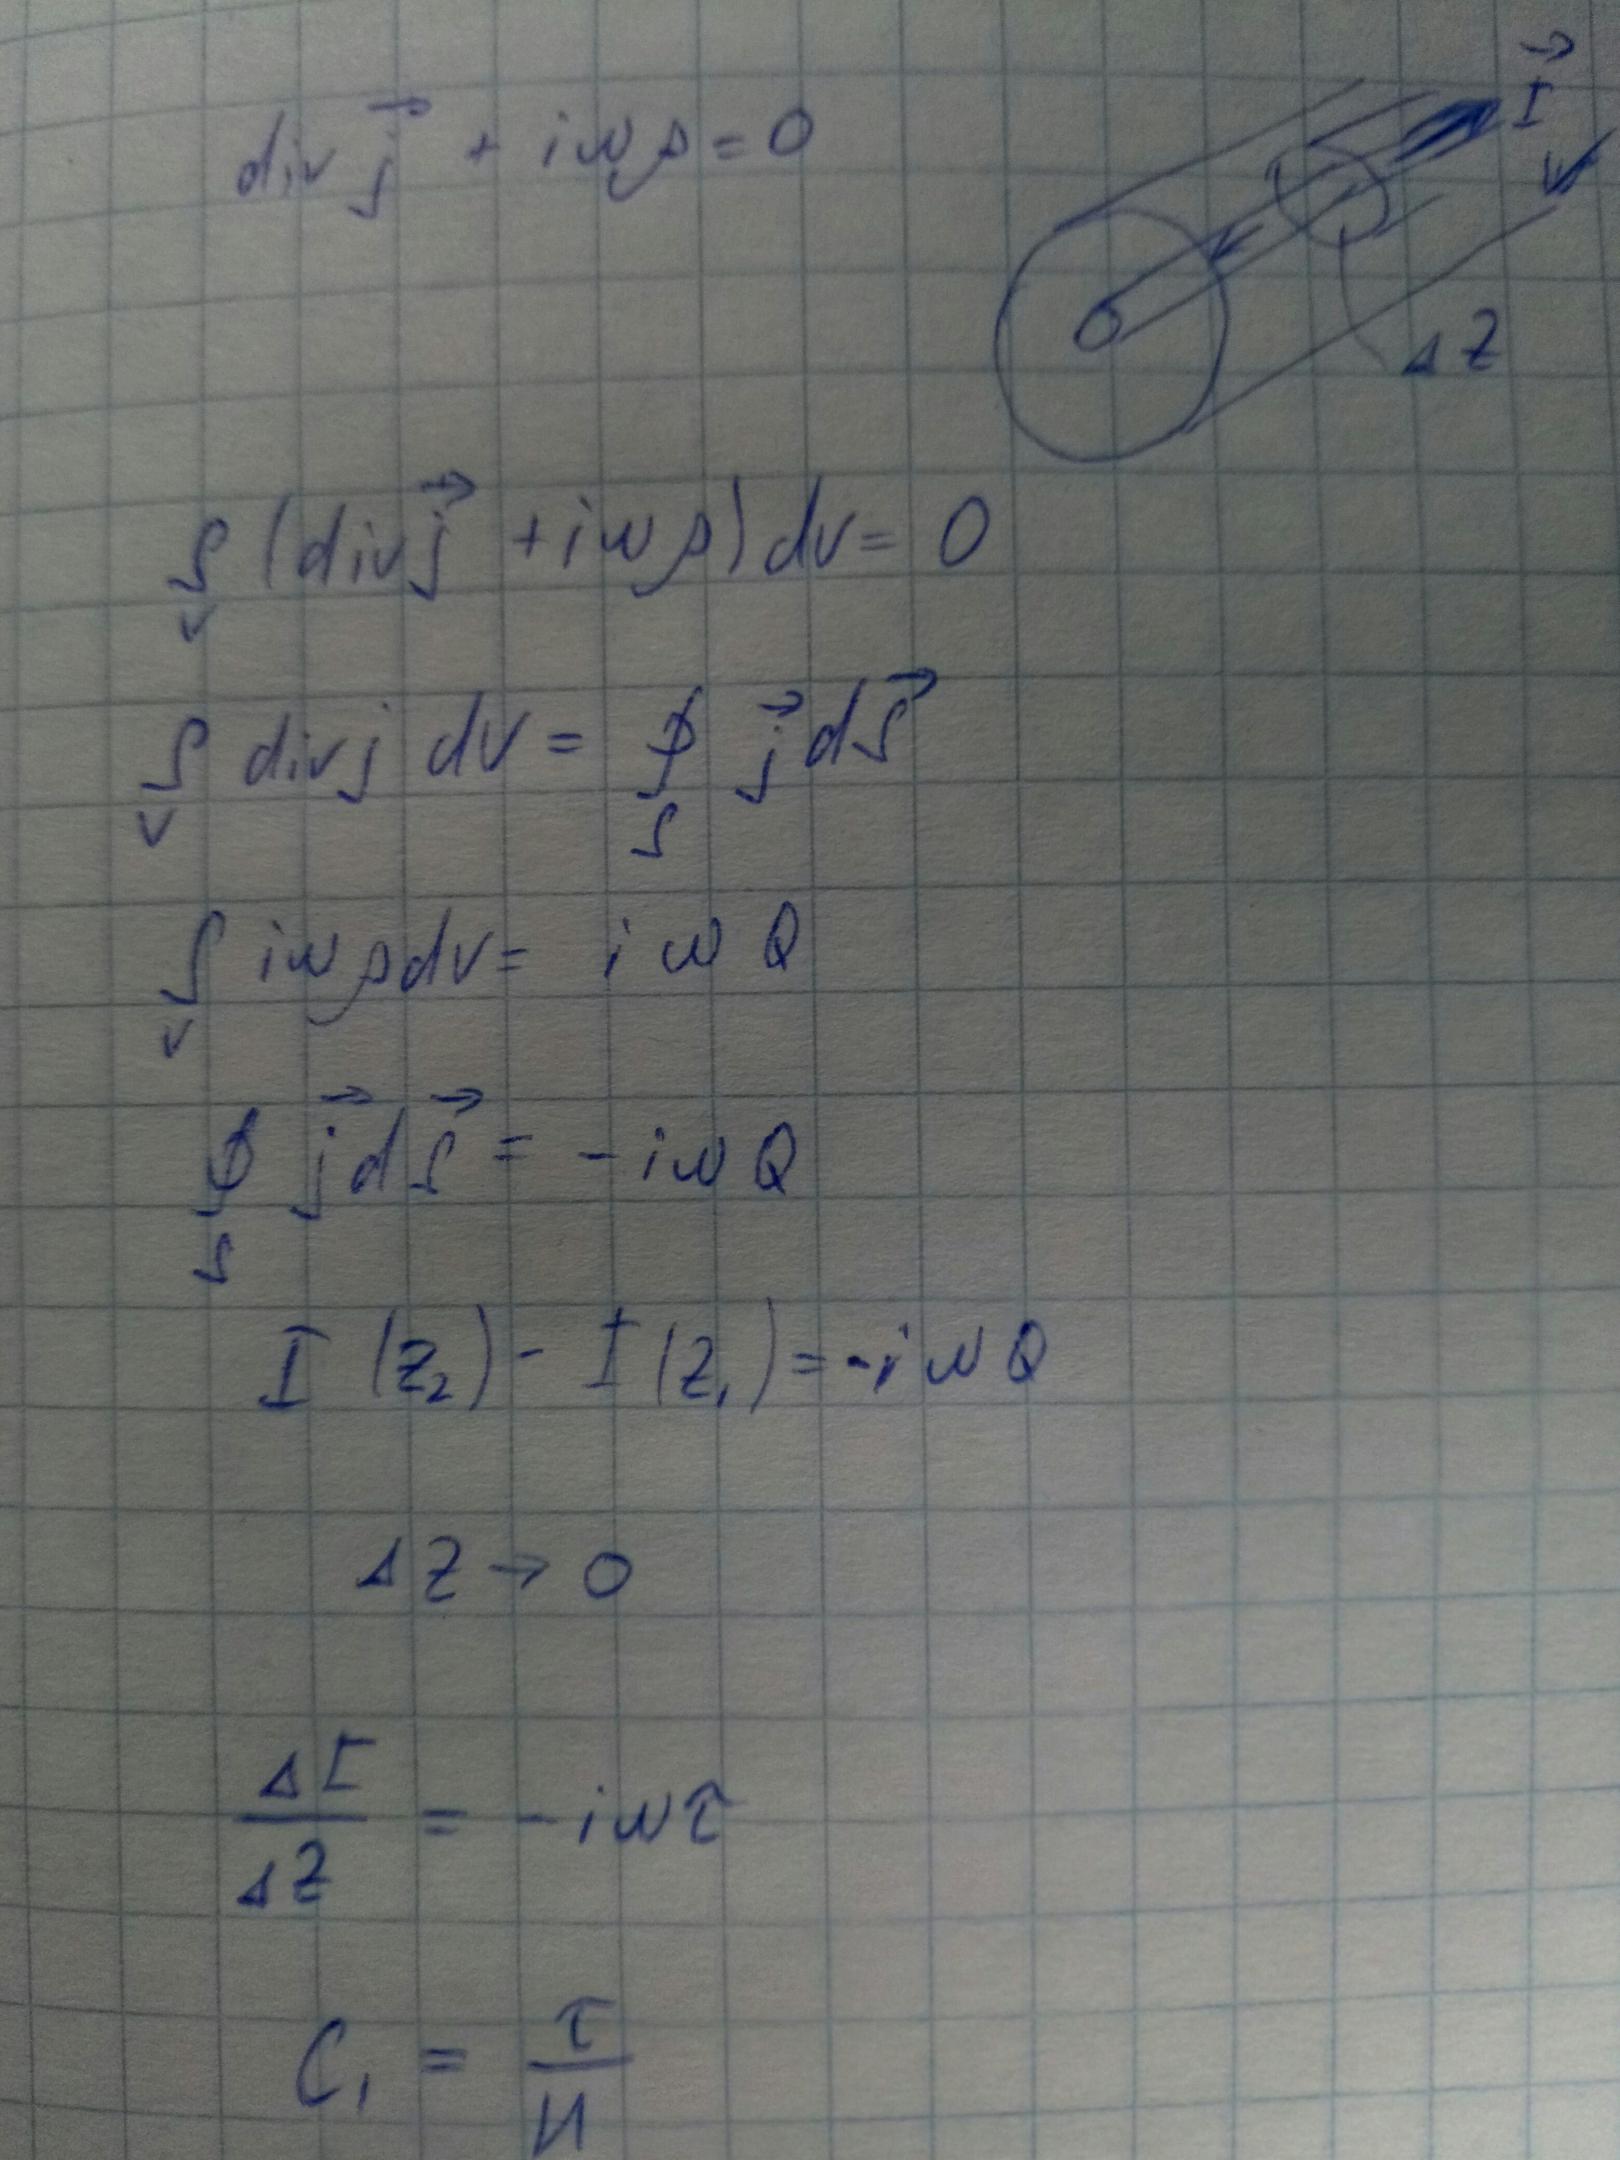 div j⃗ + iωρ = 0
I⃗
ΔZ
∫ᵥ (div j⃗ + iωρ) dv = 0
∫ᵥ div j dv = ∮ₛ j⃗ dS⃗
∫ᵥ iωρdv = iωQ
∮ₛ j⃗ dS⃗ = -iωQ
I(z₂) - I(z₁) = -iωQ
ΔZ → 0
ΔI/ΔZ = -iωτ
C₁ = τ/И